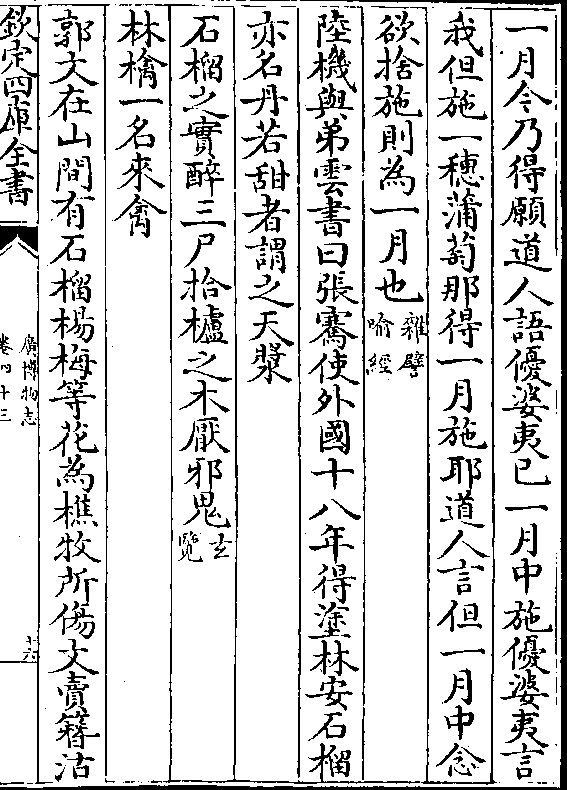 一月令乃得願道人語優婆夷已一月中施優婆夷言
我但施一穗蒲萄那得一月施耶道人言但一月中念
欲捨施則為一月也雜譬喻經
陸機與弟雲書曰張騫使外國十八年得塗林安石榴
亦名丹若甜者謂之天漿
石榴之實醉三尸拾櫨之木厭邪鬼玄覽
林檎一名來禽
郭文在山間有石榴楊梅等花為樵牧所傷文賣簿沽
欽定四庫全書
廣博物志
卷四十三
十六